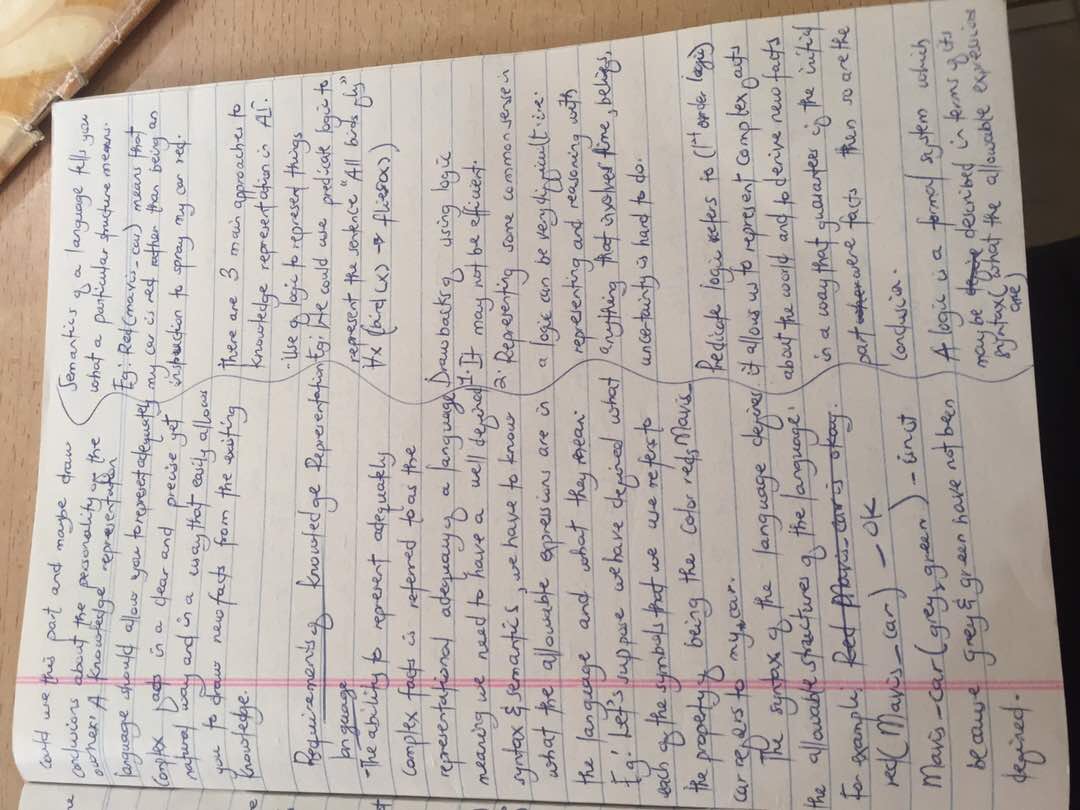 could use this part and maybe draw
conclusions about the personality of the
owner. A knowledge representation
language should allow you to represent adequately
complex facts in a clear and precise yet
natural way and in a way that easily allows
you to draw new facts from the existing
knowledge.
Requirements of knowledge Representation
language
- The ability to represent adequately
complex facts is referred to as the
representational adequacy of a language
meaning we need to have a well defined
syntax & semantics, we have to know
what the allowable expressions are in
the language and what they mean
Eg: Let's suppose we have defined what
each of the symbols that we use refers to
the property being the color red, Mavis_
car refers to my car.
The syntax of the language defines
the allowable structures of the language:
for example:
red(Mavis_car) - OK
Mavis_car(grey & green) - isn't
because grey & green have not been
defined.
Semantics of a language tells you
what a particular structure means.
Eg: Red(mavis-car) means that
my car is red rather than being an
instruction to spray my car red.
There are 3 main approaches to
knowledge representation in AI.
. Use of logic to represent things
Eg: We could use predicate logic to
represent the sentence "All birds fly"
∀x (bird(x) → flies(x))
Drawbacks of using logic
1. It may not be efficient.
2. Representing some common sense in
a logic can be very difficult i.e:
representing and reasoning with
anything that involves time, beliefs,
uncertainty is hard to do.
Predicate logic refers to (1st order logic)
it allows us to represent complex facts
about the world and to derive new facts
in a way that guarantees if the initial
part were facts then so are the
conclusion.
A logic is a formal system which
may be described in terms of its
syntax (what the allowable expression
are)